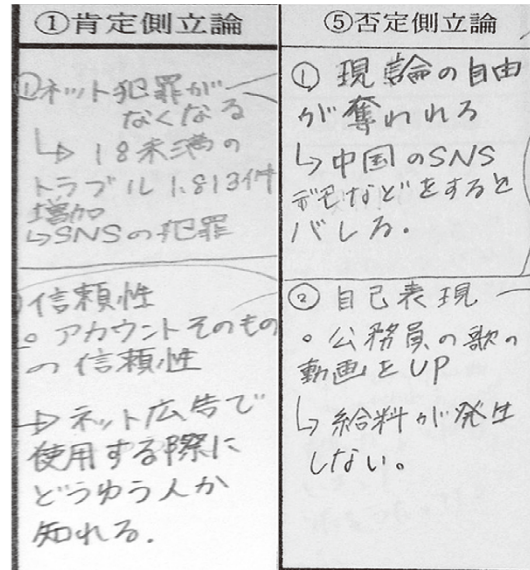 ①肯定側立論
①ネット犯罪が
なくなる
↳18未満の
トラブル1.813件
増加
↳SNSの犯罪
信頼性
。アカウントそのもの
の信頼性
→ネット広告で
使用する際に
どうゆう人か
知れる.
⑤否定側立論
① 現論の自由
が奪われる
↳中国のSNS
デモなどをすると
バレる.
② 自己表現
。公務員の歌の
動画をUP
↳給料が発生
しない。